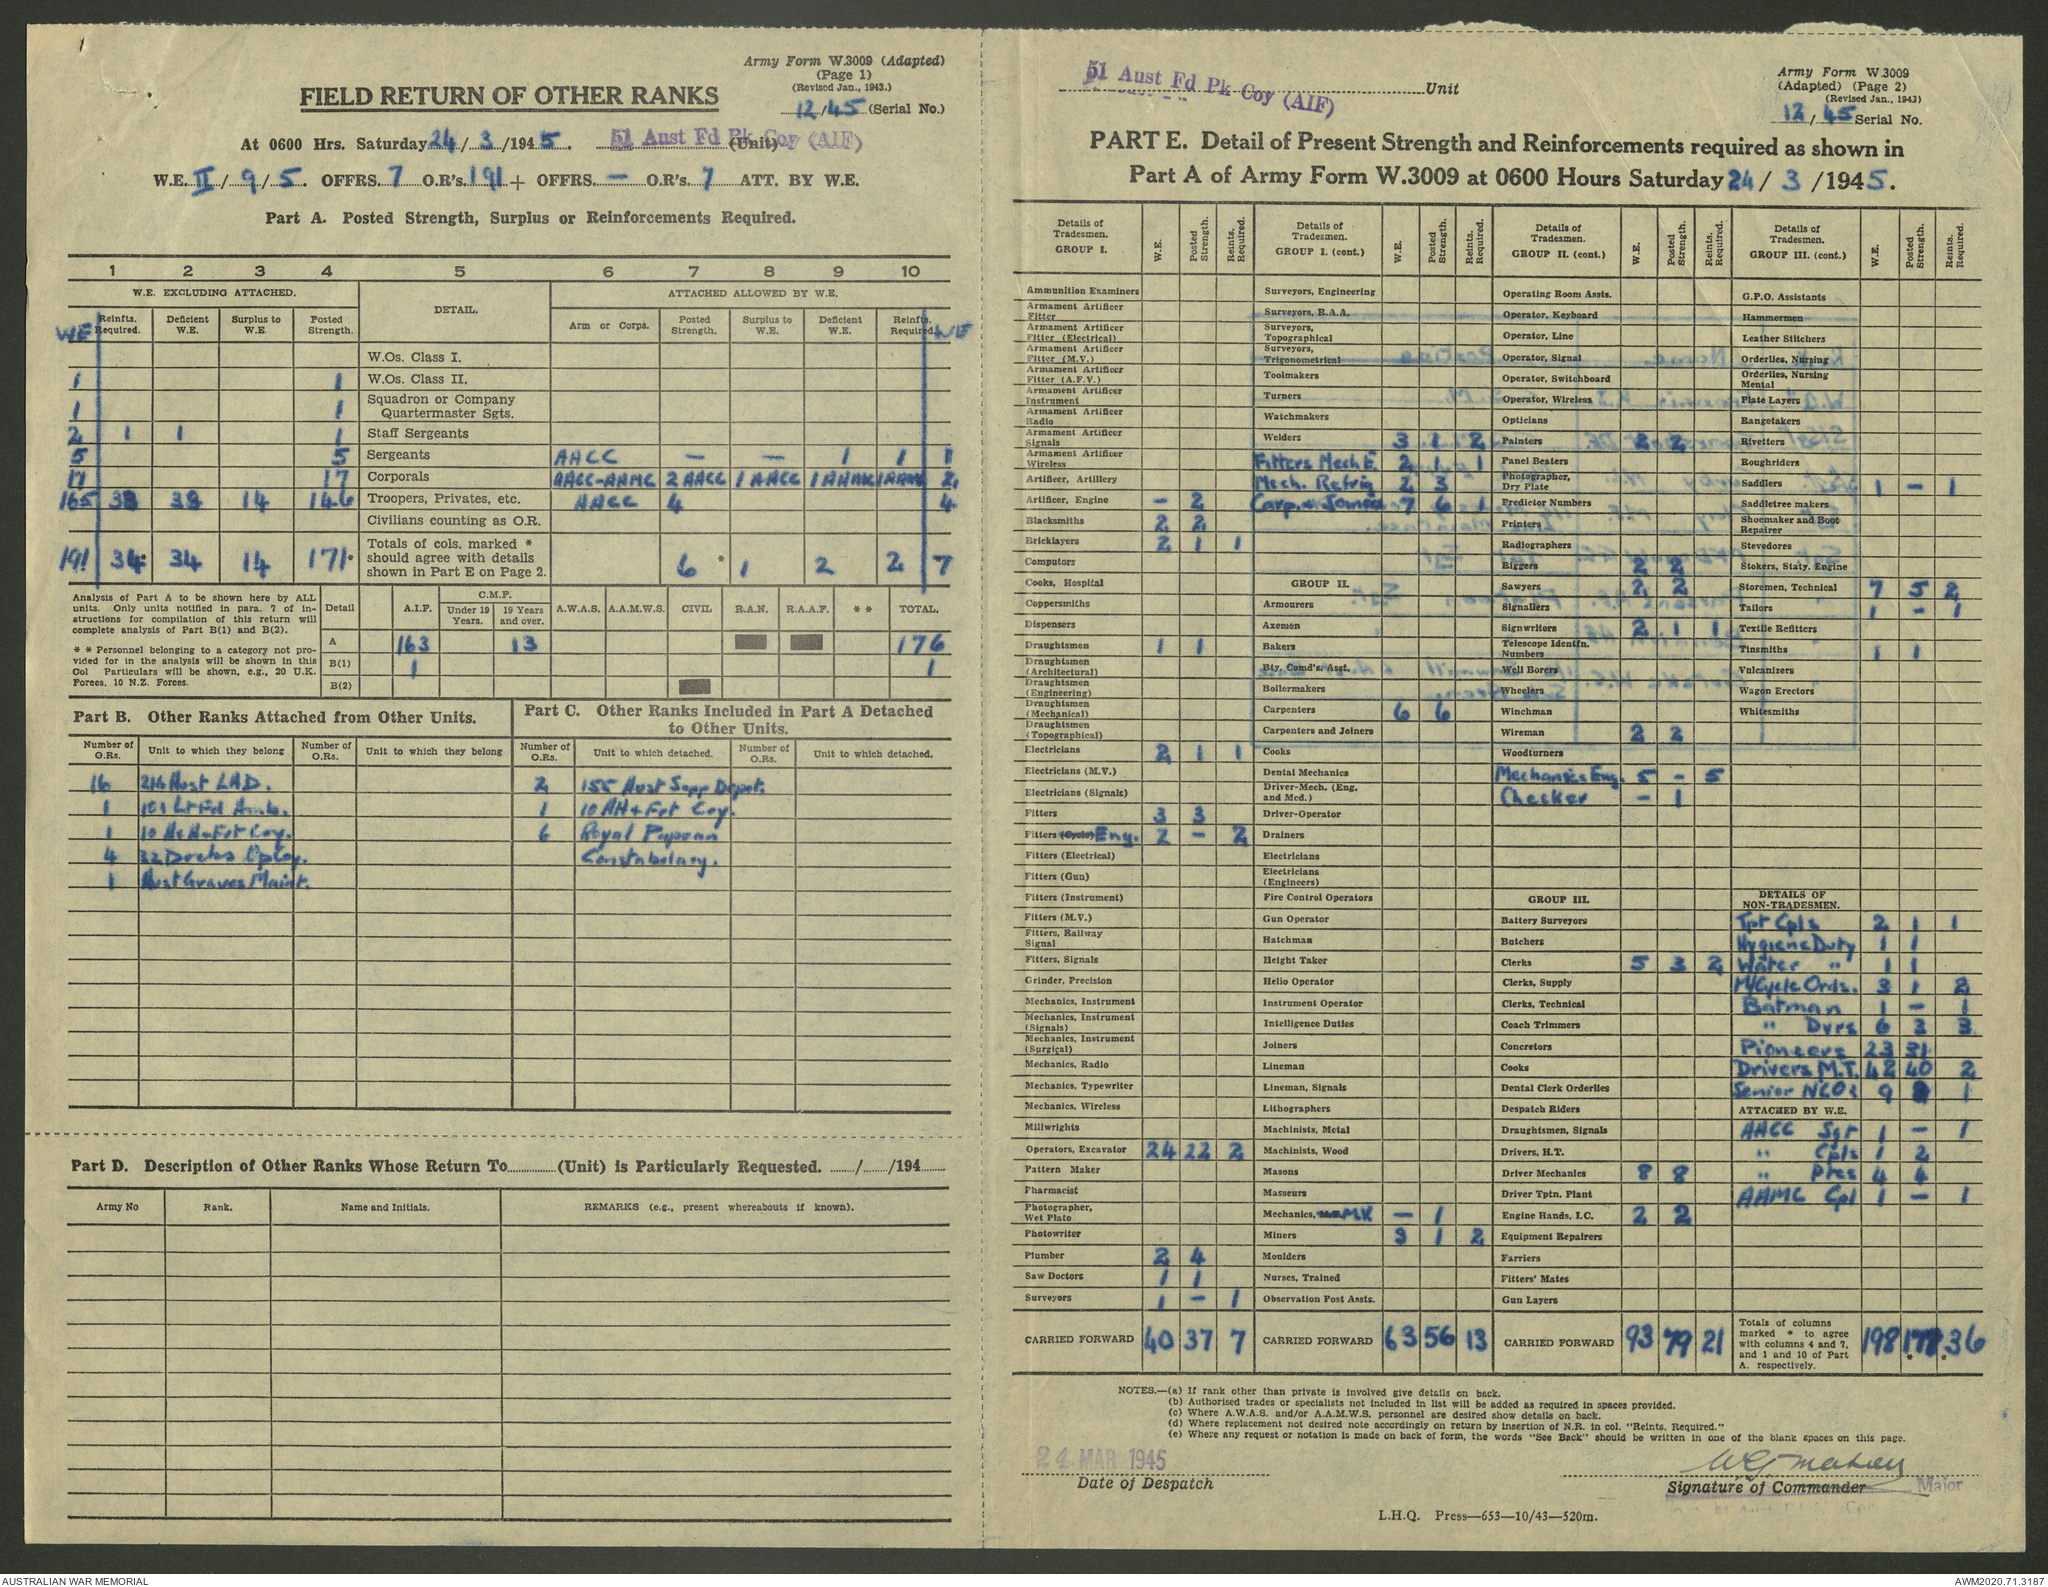 Army Form W.3009 (Adapted)
(Page 1)
(Revised Jan., 1943.)
12/45 (Serial No.)
FIELD RETURN OF OTHER RANKS
At 0600 Hrs. Saturday 24/3/1945. 51 Aust Fd Pk Coy (AIF) (Unit)
W.E. II/9/5. OFFRS. 7 O.R's. 191 + OFFRS. — O.R's. 7 ATT. BY W.E.
Part A. Posted Strength, Surplus or Reinforcements Required.
1 2 3 4 5 6 7 8 9 10
W.E. EXCLUDING ATTACHED. DETAIL. ATTACHED ALLOWED BY W.E.
WE Reinfts. Required. Deficient W.E. Surplus to W.E. Posted Strength. Arm or Corps. Posted Strength. Surplus to W.E. Deficient W.E. Reinfts. Required. WE
W.Os. Class I.
1 1 W.Os. Class II.
1 1 Squadron or Company Quartermaster Sgts.
2 1 1 1 Staff Sergeants
5 5 Sergeants AACC — — 1 1 1
17 17 Corporals AACC-AAMC 2 AACC 1 AACC 1 AAMC 1 AAMC 2
165 33 33 14 146 Troopers, Privates, etc. AACC 4 4
Civilians counting as O.R.
191 34* 34 14 171* Totals of cols. marked * should agree with details shown in Part E on Page 2. 6 * 1 2 2 7
Analysis of Part A to be shown here by ALL units. Only units notified in para. 7 of instructions for compilation of this return will complete analysis of Part B(1) and B(2).
* * Personnel belonging to a category not provided for in the analysis will be shown in this Col Particulars will be shown, e.g., 20 U.K. Forces, 10 N.Z. Forces.
Detail A.I.F. C.M.F. Under 19 Years. 19 Years and over. A.W.A.S. A.A.M.W.S. CIVIL R.A.N. R.A.A.F. * * TOTAL.
A 163 13 176
B(1) 1 1
B(2)
Part B. Other Ranks Attached from Other Units.
Part C. Other Ranks Included in Part A Detached to Other Units.
Number of O.Rs. Unit to which they belong Number of O.Rs. Unit to which they belong Number of O.Rs. Unit to which detached. Number of O.Rs. Unit to which detached.
16 214 Aust LAD. 2 155 Aust Supp Depot.
1 101 Lt Fd Amb. 1 10 AH+Frt Coy.
1 10 Frt Coy. 6 Royal Papuan
4 32 Docks Op Coy. Constabulary.
1 Aust Graves Maint.
Part D. Description of Other Ranks Whose Return To (Unit) is Particularly Requested. / /194
Army No Rank. Name and Initials. REMARKS (e.g., present whereabouts if known).
51 Aust Fd Pk Coy (AIF) Unit
Army Form W.3009
(Adapted) (Page 2)
(Revised Jan., 1943)
12/45 Serial No.
PART E. Detail of Present Strength and Reinforcements required as shown in
Part A of Army Form W.3009 at 0600 Hours Saturday 24/3/1945.
Details of Tradesmen. GROUP I. W.E. Posted Strength. Reints. Required.
Ammunition Examiners
Armament Artificer Fitter
Armament Artificer Fitter (Electrical)
Armament Artificer Fitter (M.V.)
Armament Artificer Fitter (A.F.V.)
Armament Artificer Instrument
Armament Artificer Radio
Armament Artificer Signals
Armament Artificer Wireless
Artificer, Artillery
Artificer, Engine — 2
Blacksmiths 2 2
Bricklayers 2 1 1
Computors
Cooks, Hospital
Coppersmiths
Dispensers
Draughtsmen 1 1
Draughtsmen (Architectural)
Draughtsmen (Engineering)
Draughtsmen (Mechanical)
Draughtsmen (Topographical)
Electricians 2 1 1
Electricians (M.V.)
Electricians (Signals)
Fitters 3 3
Fitters (Cycle) Eng. 2 — 2
Fitters (Electrical)
Fitters (Gun)
Fitters (Instrument)
Fitters (M.V.)
Fitters, Railway Signal
Fitters, Signals
Grinder, Precision
Mechanics, Instrument
Mechanics, Instrument (Signals)
Mechanics, Instrument (Surgical)
Mechanics, Radio
Mechanics, Typewriter
Mechanics, Wireless
Millwrights
Operators, Excavator 24 22 2
Pattern Maker
Pharmacist
Photographer, Wet Plate
Photowriter
Plumber 2 4
Saw Doctors 1 1
Surveyors 1 — 1
CARRIED FORWARD 40 37 7
Details of Tradesmen. GROUP I. (cont.) W.E. Posted Strength. Reints. Required.
Surveyors, Engineering
Surveyors, R.A.A.
Surveyors, Topographical
Surveyors, Trigonometrical
Toolmakers
Turners
Watchmakers
Welders 3 1 2
Fitters Mech E. 2 1 1
Mech. Refrig 2 3
Carp. & Joiners 7 6 1
GROUP II.
Armourers
Axemen
Bakers
Bty. Comd's. Asst.
Boilermakers
Carpenters 6 6
Carpenters and Joiners
Cooks
Dental Mechanics
Driver-Mech. (Eng. and Med.)
Driver-Operator
Drainers
Electricians
Electricians (Engineers)
Fire Control Operators
Gun Operator
Hatchman
Height Taker
Helio Operator
Instrument Operator
Intelligence Duties
Joiners
Lineman
Lineman, Signals
Lithographers
Machinists, Metal
Machinists, Wood
Masons
Masseurs
Mechanics, M.V. — 1
Miners 3 1 2
Moulders
Nurses, Trained
Observation Post Assts.
CARRIED FORWARD 63 56 13
Details of Tradesmen. GROUP II. (cont.) W.E. Posted Strength. Reints. Required.
Operating Room Assts.
Operator, Keyboard
Operator, Line
Operator, Signal
Operator, Switchboard
Operator, Wireless
Opticians
Painters 2 2
Panel Beaters
Photographer, Dry Plate
Predictor Numbers
Printers
Radiographers
Riggers 2 2
Sawyers 2 2
Signallers
Signwriters 2 1 1
Telescope Identfn. Numbers
Well Borers
Wheelers
Winchman
Wireman 2 2
Woodturners
Mechanics Eng. 5 — 5
Checker — 1
GROUP III.
Battery Surveyors
Butchers
Clerks 5 3 2
Clerks, Supply
Clerks, Technical
Coach Trimmers
Concretors
Cooks
Dental Clerk Orderlies
Despatch Riders
Draughtsmen, Signals
Drivers, H.T.
Driver Mechanics 8 8
Driver Tptn. Plant
Engine Hands, I.C. 2 2
Equipment Repairers
Farriers
Fitters' Mates
Gun Layers
CARRIED FORWARD 93 79 21
Details of Tradesmen. GROUP III. (cont.) W.E. Posted Strength. Reints. Required.
G.P.O. Assistants
Hammermen
Leather Stitchers
Orderlies, Nursing
Orderlies, Nursing Mental
Plate Layers
Rangetakers
Rivetters
Roughriders
Saddlers 1 — 1
Saddletree makers
Shoemaker and Boot Repairer
Stevedores
Stokers, Staty. Engine
Storemen, Technical 7 5 2
Tailors 1 — 1
Textile Refitters
Tinsmiths 1 1
Vulcanizers
Wagon Erectors
Whitesmiths
DETAILS OF NON-TRADESMEN.
Tpt Cpls 2 1 1
Hygiene Duty 1 1
Water " 1 1
M/Cycle Ords. 3 1 2
Batman 1 — 1
" Dvrs 6 3 3
Pioneers 23 31
Drivers M.T. 42 40 2
Senior NCOs 9 1
ATTACHED BY W.E.
AACC Sgt 1 — 1
" Cpls 1 2
" Ptes 4 4
AAMC Cpl 1 — 1
Totals of columns marked * to agree with columns 4 and 7, and 1 and 10 of Part A. respectively. 198 177* *36
NOTES.—(a) If rank other than private is involved give details on back.
(b) Authorised trades or specialists not included in list will be added as required in spaces provided.
(c) Where A.W.A.S. and/or A.A.M.W.S. personnel are desired show details on back.
(d) Where replacement not desired note accordingly on return by insertion of N.R. in col. "Reints. Required."
(e) Where any request or notation is made on back of form, the words "See Back" should be written in one of the blank spaces on this page.
24 MAR 1945
Date of Despatch
Signature of Commander Major
L.H.Q. Press—653—10/43—520m.
AUSTRALIAN WAR MEMORIAL
AWM2020.71.3187